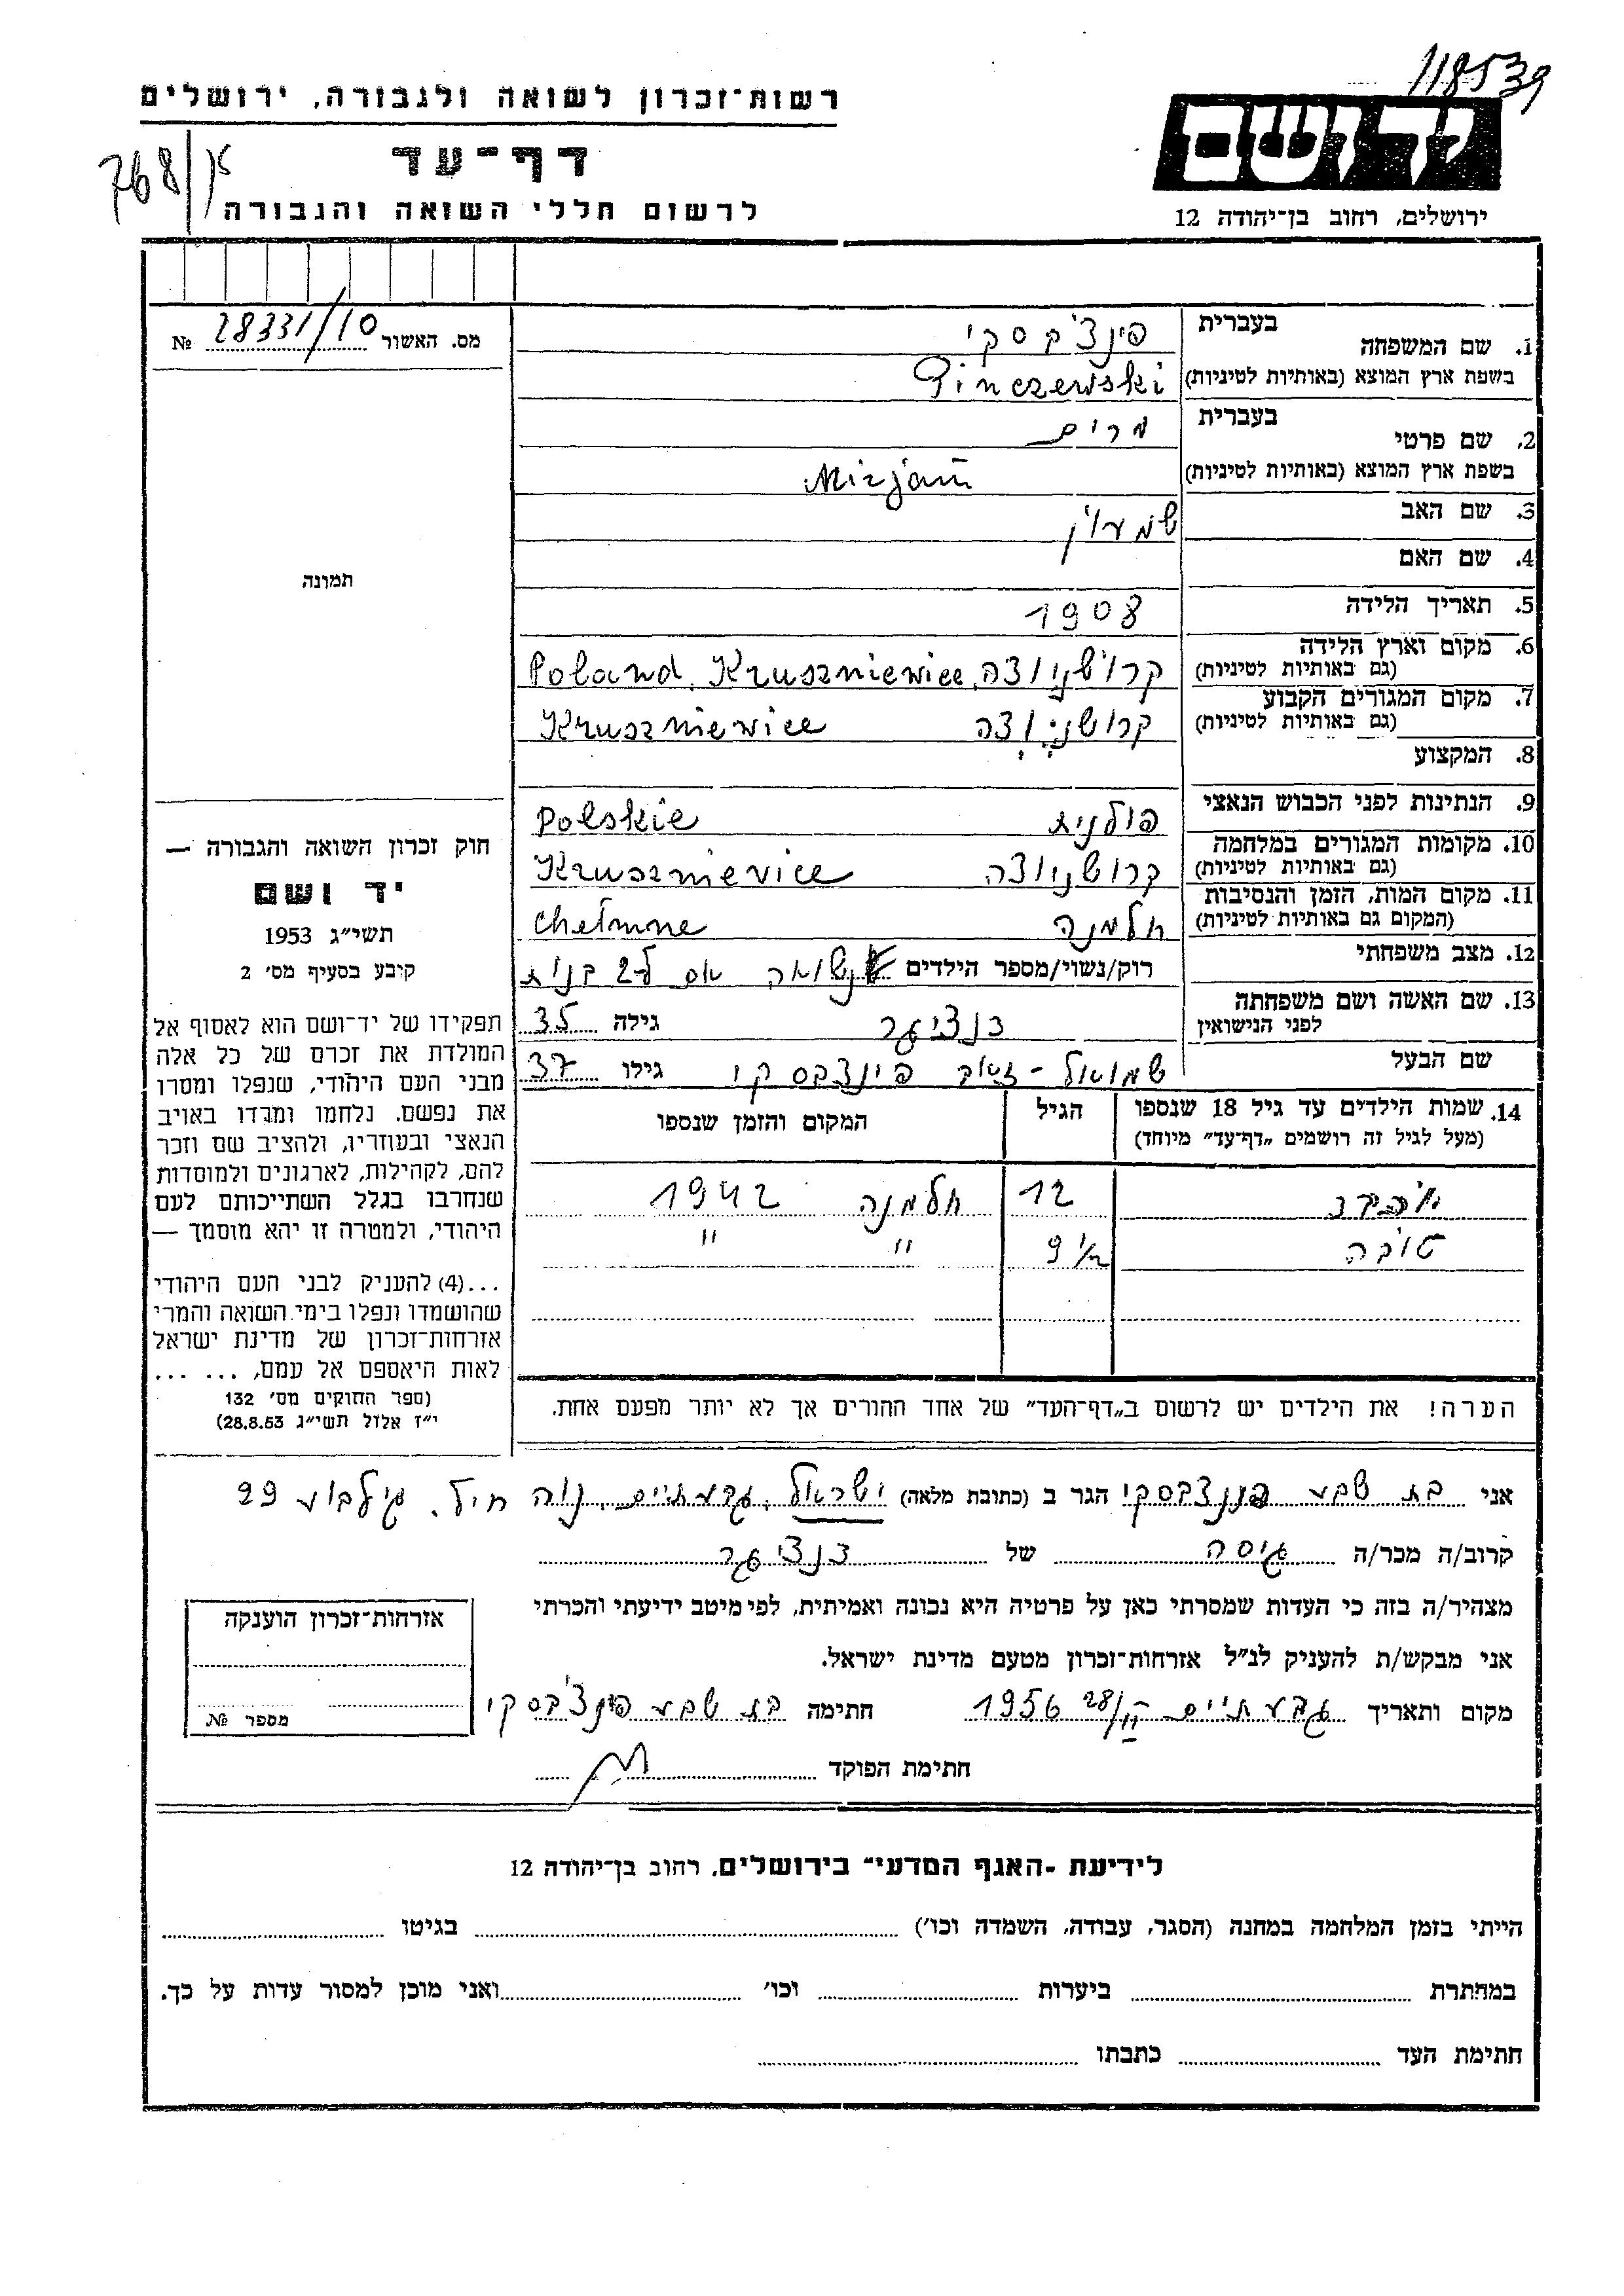 118539
רשות־זכרון לשואה ולגבורה, ירושלים
יד ושם
דף־עד
768/א
לרשום חללי השואה והגבורה
ירושלים, רחוב בן־יהודה 12
מס. האשור 28331/10 №
תמונה
1. שם המשפחה בעברית פינצ'בסקי
בשפת ארץ המוצא (באותיות לטיניות) Pinczewski
2. שם פרטי בעברית מרים
בשפת ארץ המוצא (באותיות לטיניות) Mirjam
3. שם האב שמעון
4. שם האם
5. תאריך הלידה 1908
6. מקום וארץ הלידה
(גם באותיות לטיניות) קרושניוצה, Poland, Kruszniewice
7. מקום המגורים הקבוע
(גם באותיות לטיניות) קרושניוצה Kruszniewice
8. המקצוע
9. הנתינות לפני הכבוש הנאצי פולנית Polskie
10. מקומות המגורים במלחמה
(גם באותיות לטיניות) קרושניוצה Kruszniewice
11. מקום המות, הזמן והנסיבות
(המקום גם באותיות לטיניות) חלמנה Chelmne
12. מצב משפחתי רוק/נשוי/מספר הילדים נשואה אם ל-2 בנות
13. שם האשה ושם משפחתה
לפני הנישואין גילה 35
שם הבעל שמואל-זאב פינצבסקי גילו 37
14. שמות הילדים עד גיל 18 שנספו הגיל המקום והזמן שנספו
(מעל לגיל זה רושמים „דף־עד" מיוחד)
12 חלמנה 1942
טובה 9 " "
הערה! את הילדים יש לרשום ב„דף־העד" של אחד ההורים אך לא יותר מפעם אחת.
חוק זכרון השואה והגבורה —
יד ושם
תשי"ג 1953
קובע בסעיף מס' 2
תפקידו של יד־ושם הוא לאסוף אל
המולדת את זכרם של כל אלה
מבני העם היהודי, שנפלו ומסרו
את נפשם, נלחמו ומרדו באויב
הנאצי ובעוזריו, ולהציב שם וזכר
להם, לקהילות, לארגונים ולמוסדות
שנחרבו בגלל השתייכותם לעם
היהודי, ולמטרה זו יהא מוסמך —
...(4) להעניק לבני העם היהודי
שהושמדו ונפלו בימי השואה והמרי
אזרחות־זכרון של מדינת ישראל
לאות היאספם אל עמם, ... ...
(ספר החוקים מס' 132
י"ז אלול תשי"ג 28.8.53)
אני בת שבע פינצבסקי הגר ב (כתובת מלאה) ישראל, גבעתיים, נוה חיל, גילבוע 29
קרוב/ה מכר/ה גיסה של
מצהיר/ה בזה כי העדות שמסרתי כאן על פרטיה היא נכונה ואמיתית, לפי מיטב ידיעתי והכרתי
אני מבקש/ת להעניק לנ"ל אזרחות־זכרון מטעם מדינת ישראל.
מקום ותאריך גבעתיים 28/II 1956 חתימה בת שבע פינצ'בסקי
חתימת הפוקד
אזרחות־זכרון הוענקה
מספר №
לידיעת „האגף המדעי" בירושלים, רחוב בן־יהודה 12
הייתי בזמן המלחמה במחנה (הסגר, עבודה, השמדה וכו') בגיטו
במחתרת ביערות וכו' ואני מוכן למסור עדות על כך.
חתימת העד כתבתו